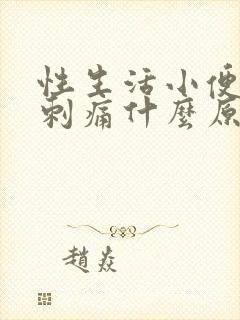 性生活小便
刺痛什麼原
趙焱